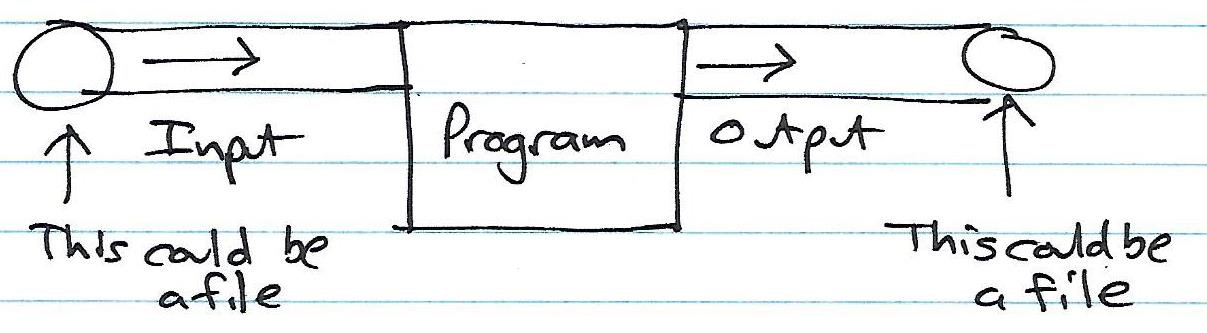 Input
Program
Output
This could be
a file
This could be
a file